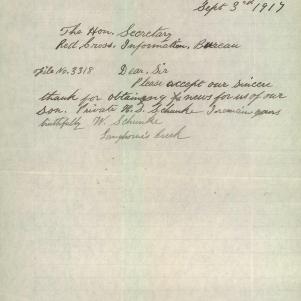 Sept 3rd 1917
The Hon. Secretary
Red Cross, Information, Bureau
File No. 3318 Dear, Sir
Please accept our sincere
thank for obtaining the news for us of our
Son. Private W. S. Schunke I remain yours
truthfully W. Schunke
Langhorne's Creek